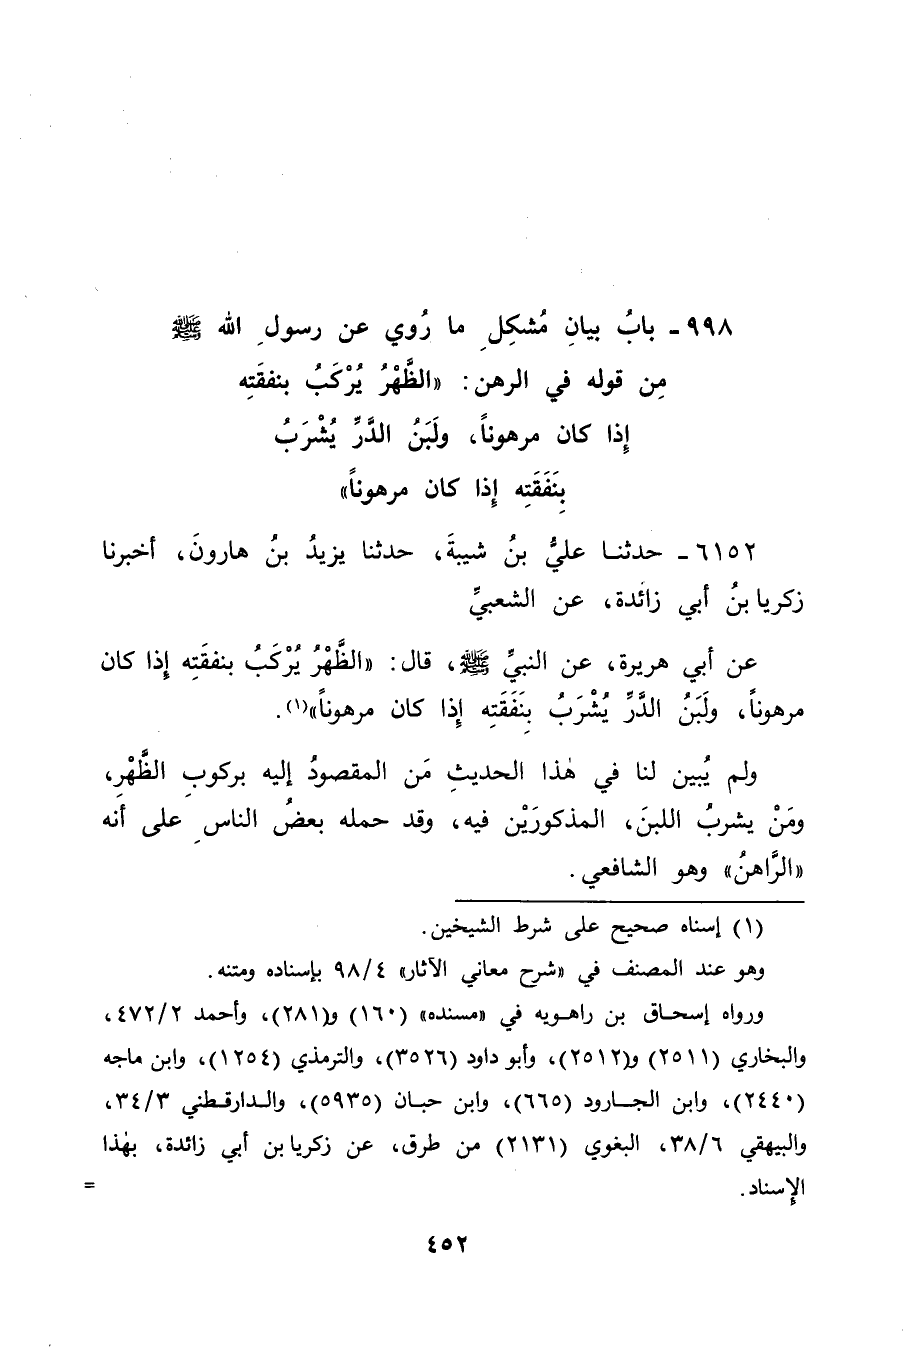 ٩٩٨ـ بابُ بيانِ مُشكِلِ ما رُوي عن رسولِ الله ﷺ
مِن قوله في الرهن: «الظَّهْرُ يُرْكَبُ بنفقَتِه
إذا كان مرهوناً، ولَبَنُ الدَّرِّ يُشْرَبُ
بِنَفَقَتِه إذا كان مرهوناً»
٦١٥٢ـ حدثنا عليُّ بنُ شيبةَ، حدثنا يزيدُ بنُ هارونَ، أخبرنا
زكريا بنُ أبي زائدة، عن الشعبيِّ
عن أبي هريرة، عن النبيِّ ﷺ، قال: «الظَّهْرُ يُرْكَبُ بنفقَتِه إذا كان
مرهوناً، ولَبَنُ الدَّرِّ يُشْرَبُ بِنَفَقَتِه إذا كان مرهوناً»(١).
ولم يُبين لنا في هٰذا الحديثِ مَن المقصودُ إليه بركوبِ الظَّهْرِ،
ومَنْ يشربُ اللبنَ، المذكورَيْنِ فيه، وقد حمله بعضُ الناسِ على أنه
«الرَّاهنُ» وهو الشافعي.
(١) إسناه صحيح على شرط الشيخين.
وهو عند المصنف في «شرح معاني الآثار» ٩٨/٤ بإسناده ومتنه.
ورواه إسحاق بن راهويه في «مسنده» (١٦٠) و(٢٨١)، وأحمد ٤٧٢/٢،
والبخاري (٢٥١١) و(٢٥١٢)، وأبو داود (٣٥٢٦)، والترمذي (١٢٥٤)، وابن ماجه
(٢٤٤٠)، وابن الجارود (٦٦٥)، وابن حبان (٥٩٣٥)، والدارقطني ٣٤/٣،
والبيهقي ٣٨/٦، البغوي (٢١٣١) من طرق، عن زكريا بن أبي زائدة، بهٰذا
الإسناد. =
٤٥٢